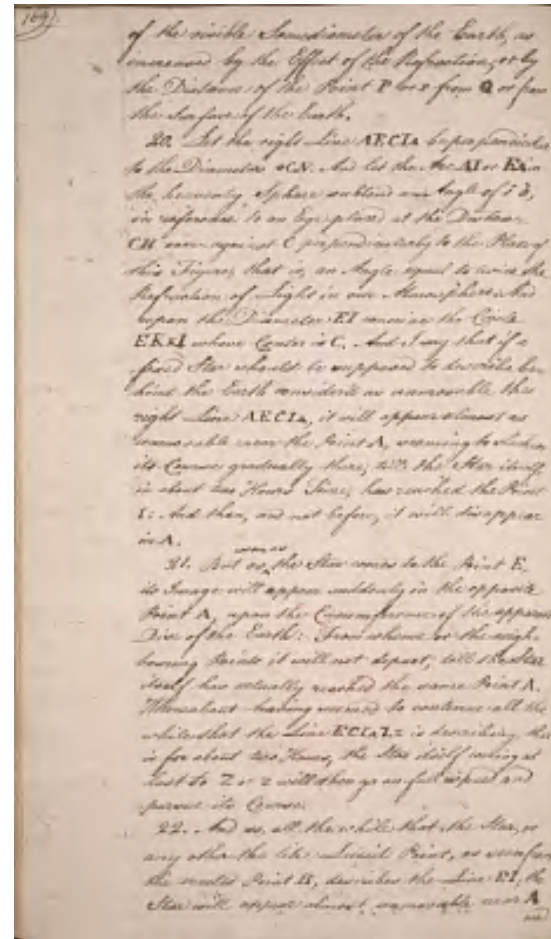 169)
of the visible Semediameter of the Earth, as
increased by the Effect of the Refraction, or by
the Distance of the Point P or p from Q or from
the Surface of the Earth.
20. Let the right Line AECIa be perpendicular
to the Diameter CN. And let the Arc AI or Ea in
the heavenly Sphere subtend an Angle of
in reference to an Eye placed at the Distance
CH over against C perpendicularly to the Plane of
this Figure, that is, an Angle equal to twice the
Refraction of Light in our Atmosphere. And
upon the Diameter EI conceive the Circle
EKkI whose Center is C. And I say that if a
fixed Star should be supposed to describe be-
hind the Earth consider'd as immovable this
right Line AECIa, it will appear almost as
immovable near the Point A, seeming to slacken
its Course gradually there, till the Star itself
in about two Hours Time, has reached the Point
I: And then, and not before, it will disappear
in A.
21. But as the Star comes to the Point E,
its Image will appear suddenly in the opposite
Point A, upon the Circumference of the apparent
Disc of the Earth: From whence or the neigh-
bouring Points it will not depart, till the Star
itself has actually reached the same Point A.
Whereabout having seemed to continue all the
while that the Line is describing, that
is for about two Hours, the Star itself coming at
last to Z or z will then go on full speed and
pursue its Course.
22. And so, all the while that the Star, or
any other the like Lucid Point, as seen from
the Point H, describes the Line EI, the
Star will appear almost immovable near A